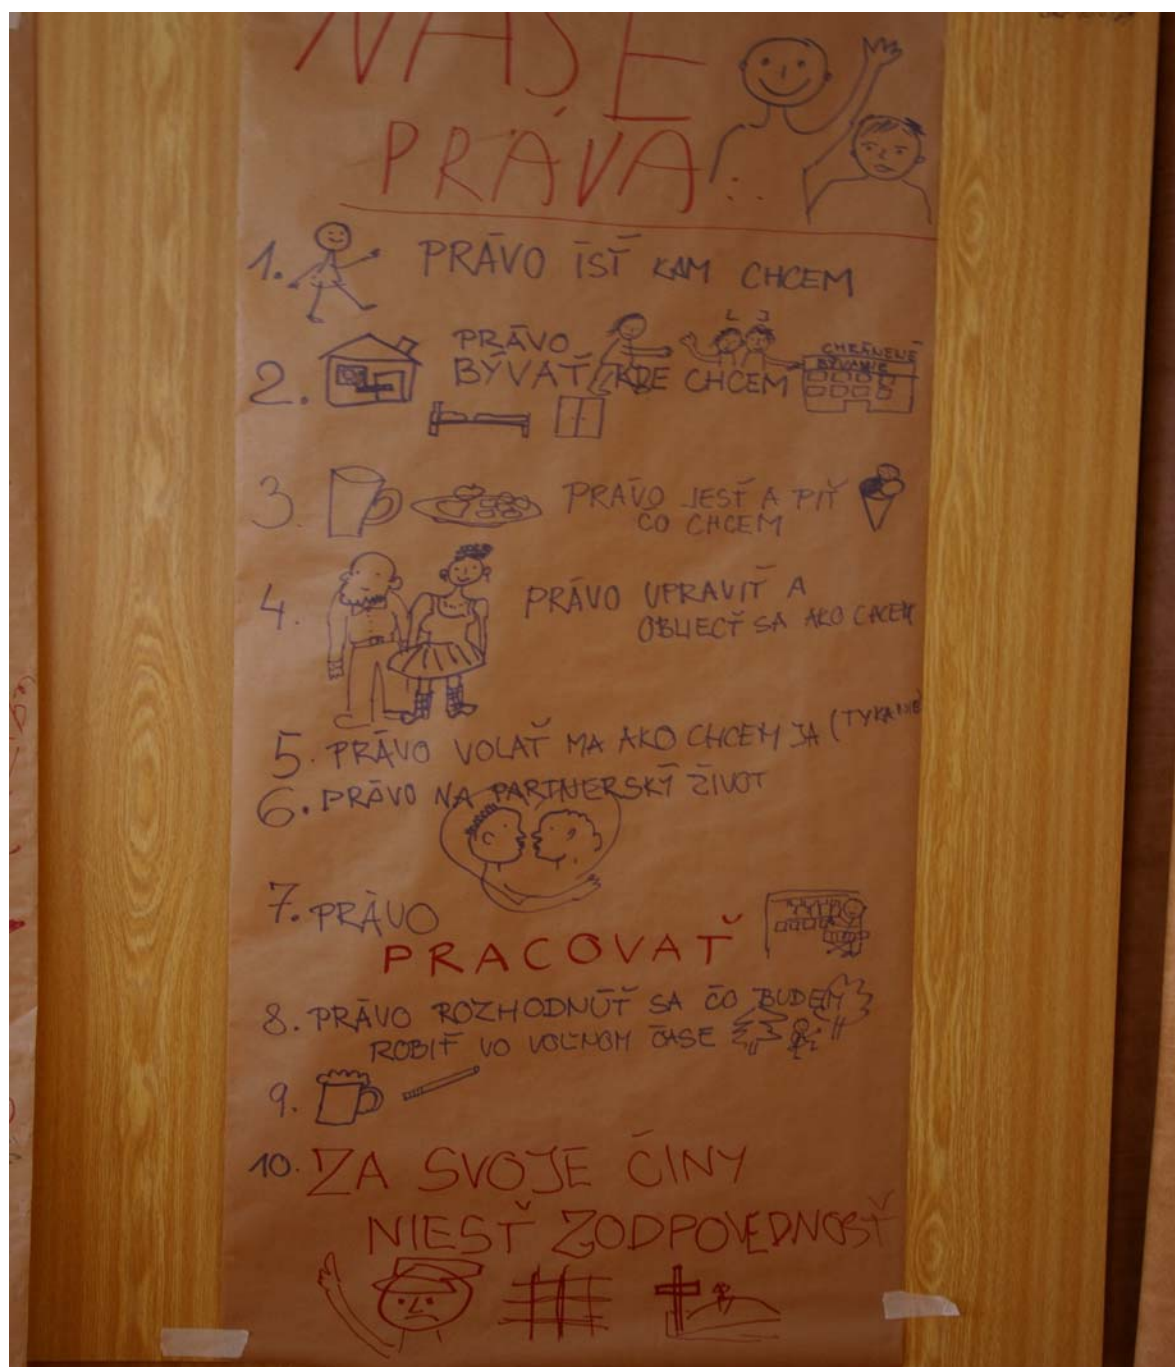 NAŠE
PRÁVA
1. PRÁVO ÍSŤ KAM CHCEM
2. PRÁVO
BÝVAŤ KDE CHCEM
CHRÁNENÉ
BÝVANIE
3. PRÁVO JESŤ A PIŤ
ČO CHCEM
4. PRÁVO UPRAVIŤ A
OBLIECŤ SA AKO CHCEM
5. PRÁVO VOLAŤ MA AKO CHCEM JA (TYKANIE
6. PRÁVO NA PARTNERSKÝ ŽIVOT
7. PRÁVO
PRACOVAŤ
8. PRÁVO ROZHODNÚŤ SA ČO BUDEM
ROBIŤ VO VOĽNOM ČASE
9.
10. ZA SVOJE ČINY
NIESŤ ZODPOVEDNOSŤ